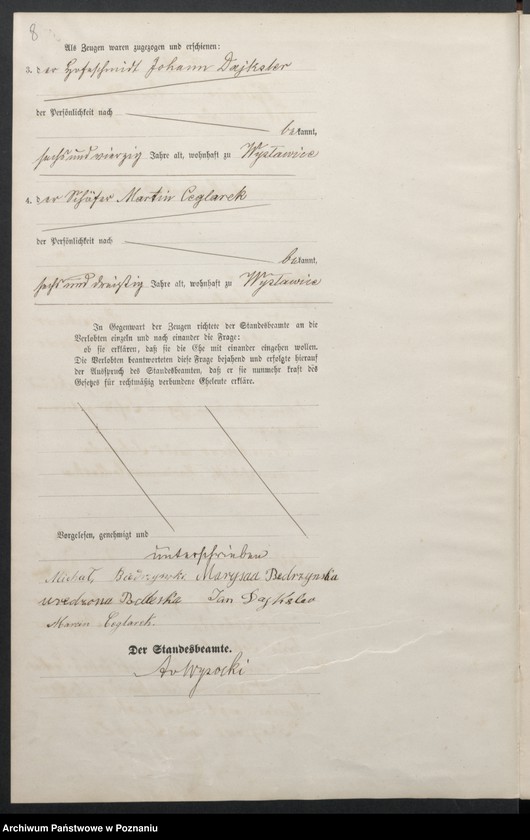 8
Als Zeugen waren zugezogen und erschienen:
3. der Hofeschmidt Johann Dajkster
der Persönlichkeit nach
bekannt,
sechsundvierzig Jahre alt, wohnhaft zu Wysławice
4. der Schäfer Martin Ceglarek
der Persönlichkeit nach
bekannt,
sechsunddreißig Jahre alt, wohnhaft zu Wysławice
In Gegenwart der Zeugen richtete der Standesbeamte an die
Verlobten einzeln und nach einander die Frage:
ob sie erklären, daß sie die Ehe mit einander eingehen wollen.
Die Verlobten beantworteten diese Frage bejahend und erfolgte hierauf
der Ausspruch des Standesbeamten, daß er sie nunmehr kraft des
Gesetzes für rechtmäßig verbundene Eheleute erkläre.
Vorgelesen, genehmigt und
unterschrieben
Michał Bedrzynski Marysaa Bedrzynska
uredzona Podleska Jan
Marcin Ceglarek
Der Standesbeamte.
AvWysocki
Archiwum Państwowe w Poznaniu